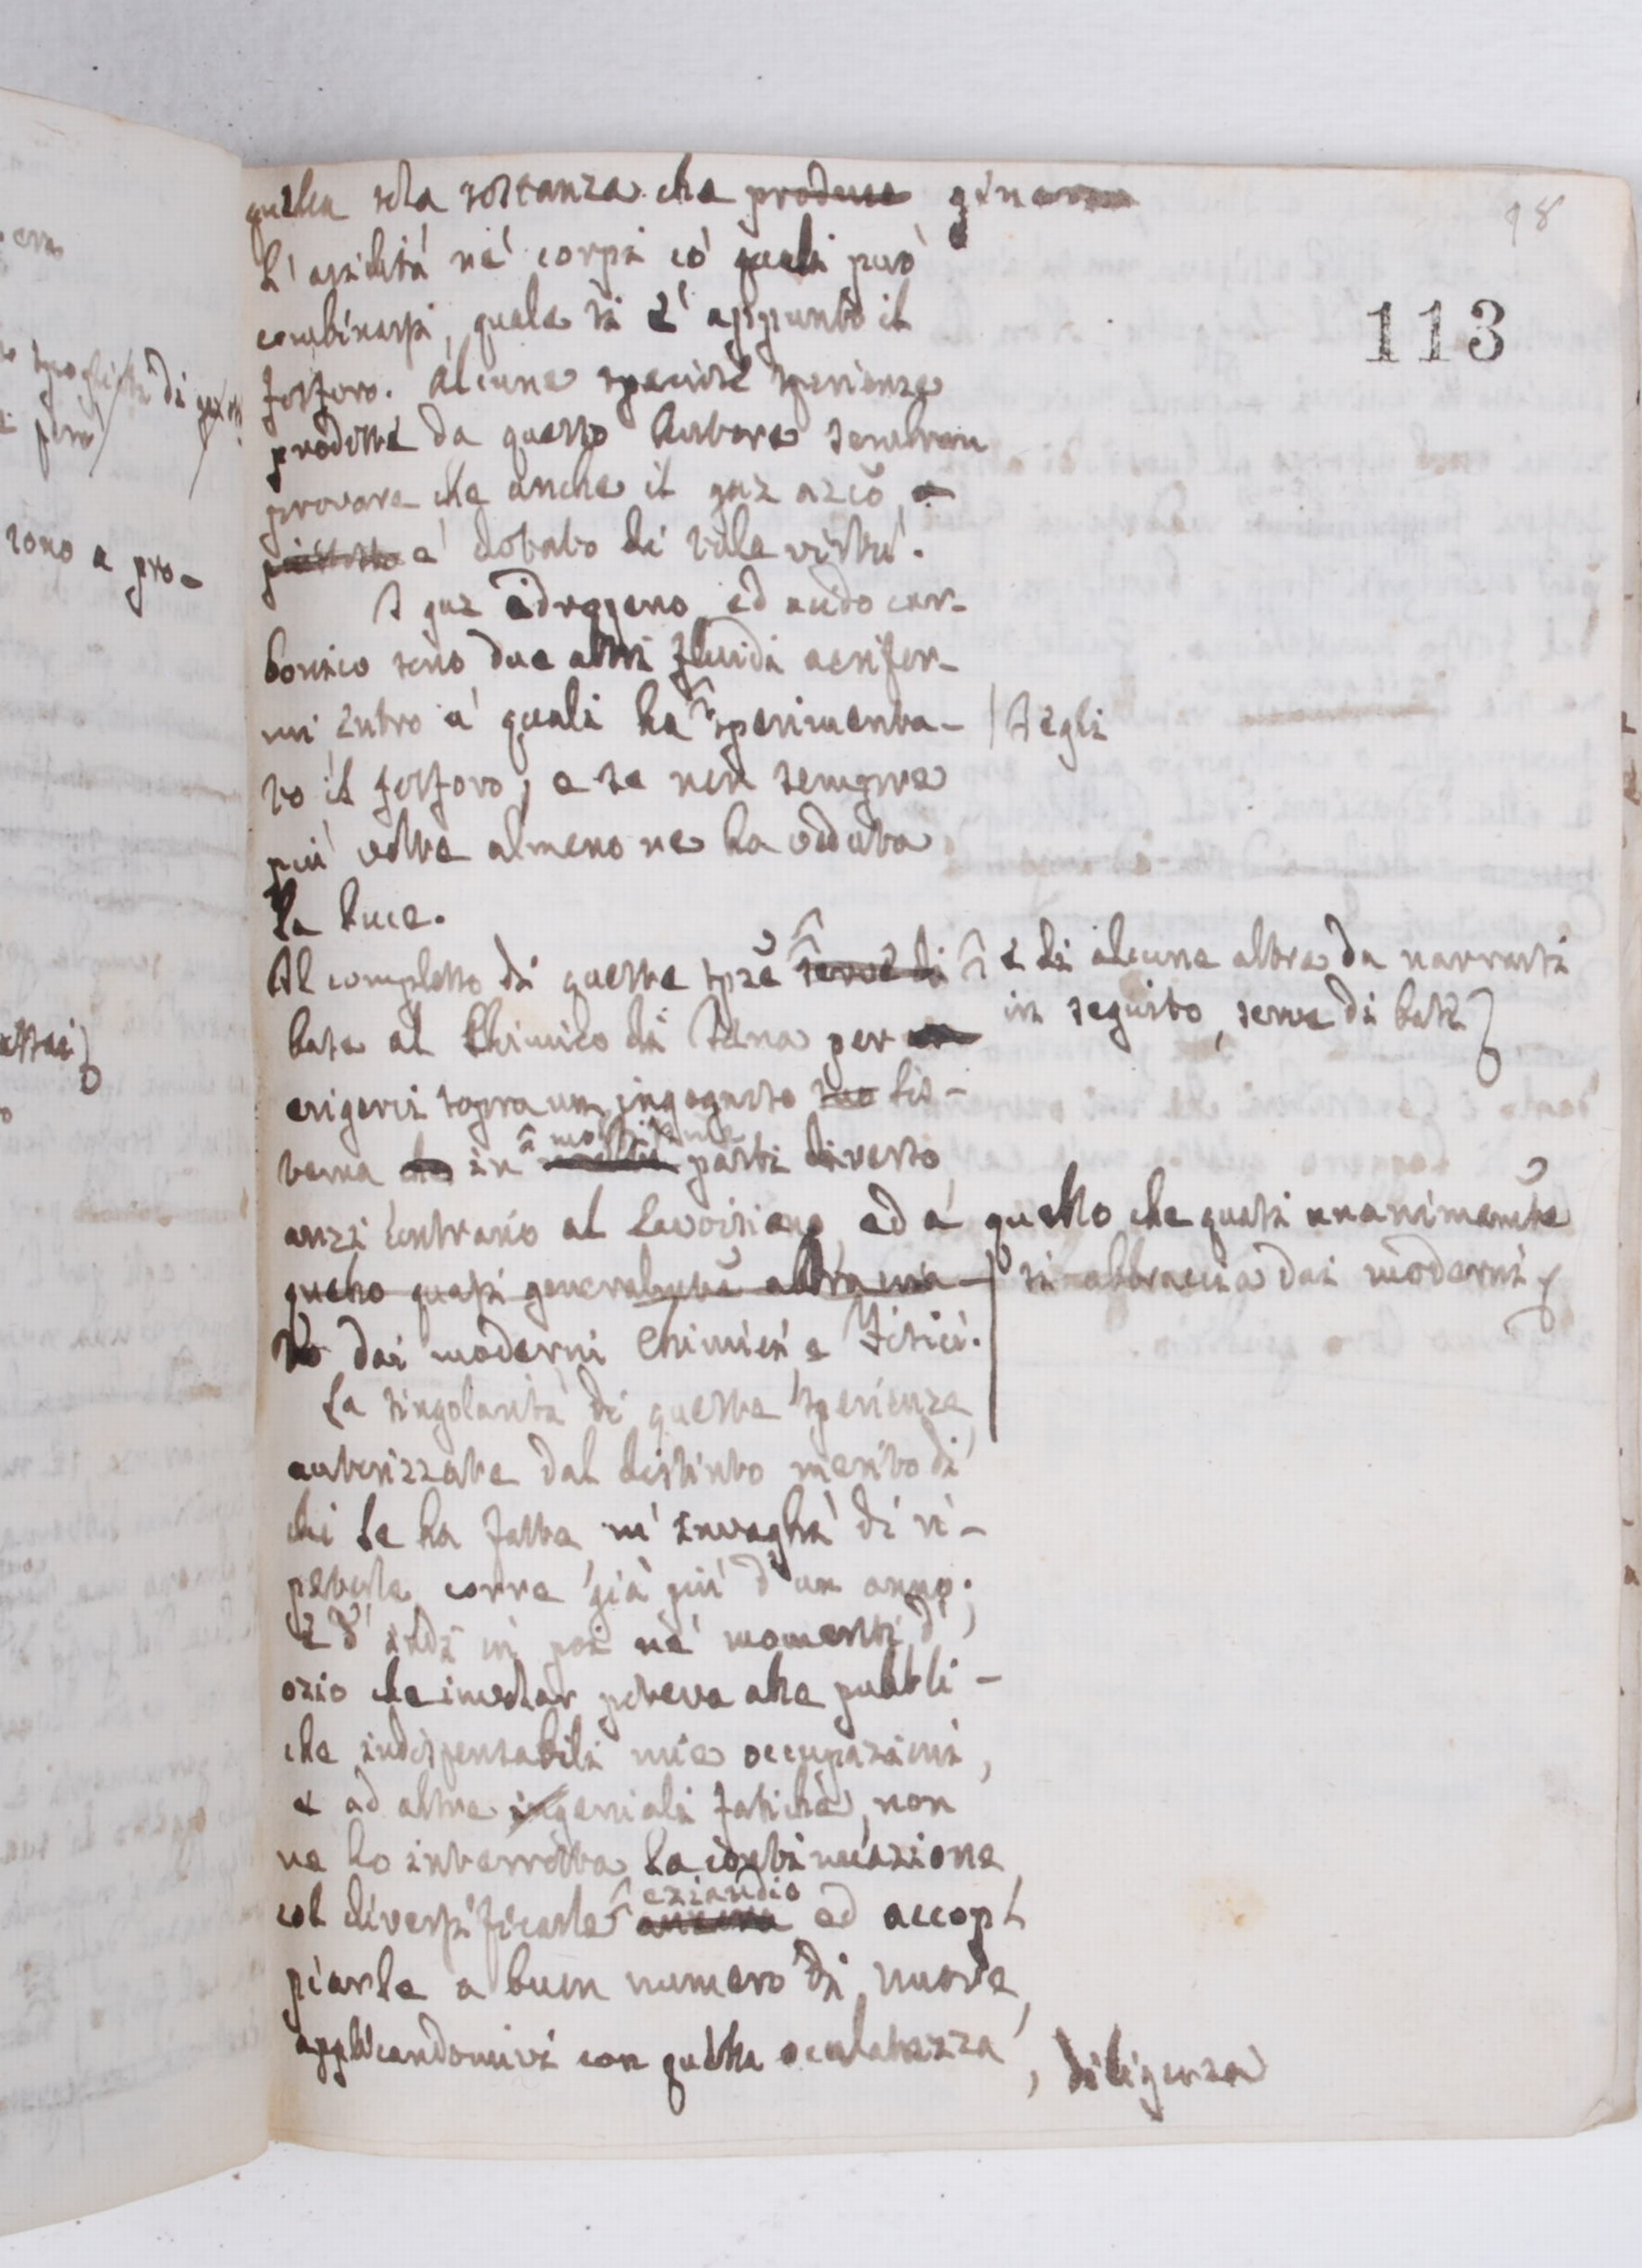 98
113
quella sola sostanza che produce genera
l'acidità ne' corpi co' quali può
combinarsi, quale si è appunto il
fosforo. Alcune speciose sperienze
prodotte da questo Autore sembran
provare che anche il gaz azò
piuttosto e' dotato di tale virtù.
I gaz idrogeno, ed acido car-
bonico sono due altri fluidi aerifor-
mi entro a' quali ha sperimenta-
egli
to il fosforo; e se non sempre
più volte almeno ne ha veduta
la luce.
Al complesso di queste spzẽ serve di
e di alcune altre da narrarsi
in seguito, serve di base
base al Chimico di Jena per
erigervi sopra un ingegnoso suo sis-
tema che in moltissime parti diverso,
anzi contrario al Lavoisiano, ed a quello che quasi unanimamẽte
quello quasi generalmẽte abbraccia-
si abbraccia dai moderni
to dai moderni Chimici e Fisici.
La singolarità di queste sperienze
autorizzate dal distinto merito di
chi le ha fatte, m'invaghì di ri-
peterle, corre già più d'un anno;
e d'indi in poi ne' momenti d'
ozio che involar poteva alle pubbli-
che indispensabili mie occupazioni,
e ad altre geniali fatiche, non
ne ho interrotta la continuazione,
col diversificarle eziandio ancora ed accop-
piarle a buon numero di nuove,
applicandomivi con quella oculatezza, diligenza
sono a pro-